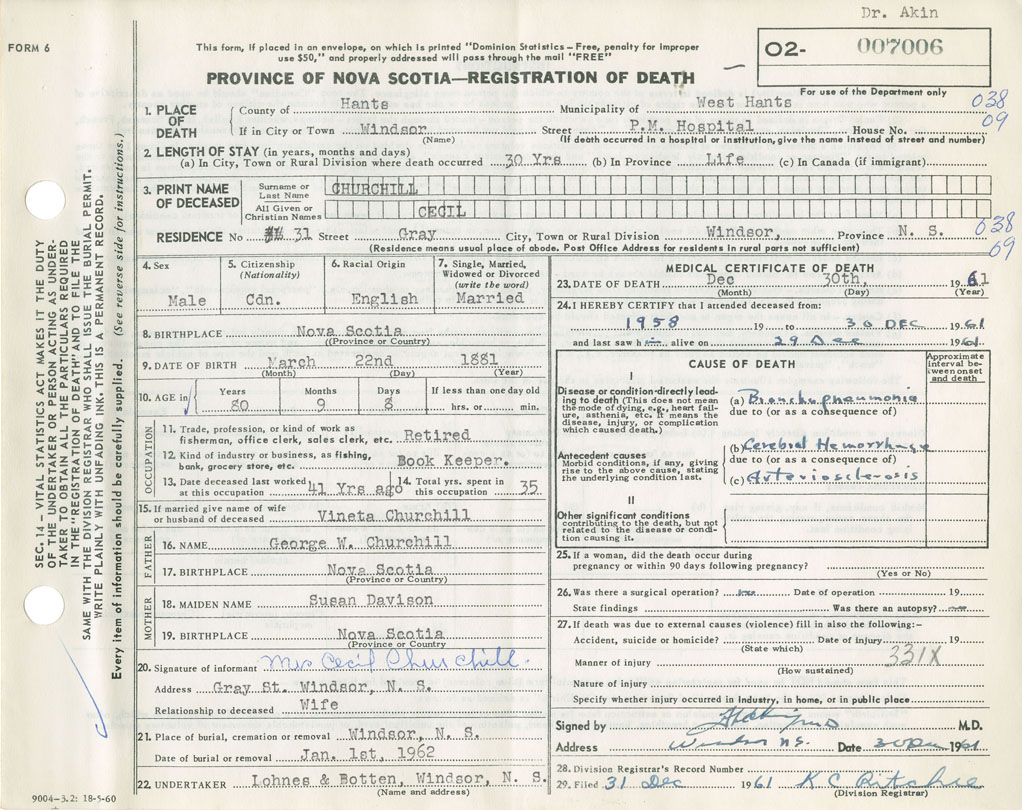 Dr. Akin
FORM 6
This form, if placed in an envelope, on which is printed "Dominion Statistics – Free, penalty for improper
use $50," and properly addressed will pass through the mail "FREE"
O2- 007006
PROVINCE OF NOVA SCOTIA—REGISTRATION OF DEATH
For use of the Department only
038
09
1. PLACE OF DEATH
County of Hants Municipality of West Hants
If in City or Town Windsor Street P.M. Hospital House No.
(Name) (If death occurred in a hospital or institution, give the name instead of street and number)
2. LENGTH OF STAY (in years, months and days)
(a) In City, Town or Rural Division where death occurred 30 Yrs (b) In Province Life (c) In Canada (if immigrant)
3. PRINT NAME OF DECEASED
Surname or Last Name CHURCHILL
All Given or Christian Names CECIL
RESIDENCE No 31 Street Gray City, Town or Rural Division Windsor, Province N. S.
038
09
(Residence means usual place of abode. Post Office Address for residents in rural parts not sufficient)
4. Sex
Male
5. Citizenship
(Nationality)
Cdn.
6. Racial Origin
English
7. Single, Married,
Widowed or Divorced
(write the word)
Married
8. BIRTHPLACE Nova Scotia
((Province or Country)
9. DATE OF BIRTH March 22nd 1881
(Month) (Day) (Year)
10. AGE in
Years Months Days If less than one day old
80 9 8 hrs. or min.
OCCUPATION
11. Trade, profession, or kind of work as
fisherman, office clerk, sales clerk, etc. Retired
12. Kind of industry or business, as fishing,
bank, grocery store, etc. Book Keeper.
13. Date deceased last worked
at this occupation 41 Yrs ago
14. Total yrs. spent in
this occupation 35
15. If married give name of wife
or husband of deceased Vineta Churchill
FATHER
16. NAME George W. Churchill
17. BIRTHPLACE Nova Scotia
(Province or Country)
MOTHER
18. MAIDEN NAME Susan Davison
19. BIRTHPLACE Nova Scotia
(Province or Country)
20. Signature of informant Mrs Cecil Churchill.
Address Gray St. Windsor, N. S.
Relationship to deceased Wife
21. Place of burial, cremation or removal Windsor, N. S.
Date of burial or removal Jan. 1st, 1962
22. UNDERTAKER Lohnes & Botten, Windsor, N. S.
(Name and address)
MEDICAL CERTIFICATE OF DEATH
23. DATE OF DEATH Dec 30th, 1961
(Month) (Day) (Year)
24. I HEREBY CERTIFY that I attended deceased from:
1958 19 to 30 DEC 1961
and last saw him alive on 29 Dec 1961
CAUSE OF DEATH
Approximate
interval be-
tween onset
and death
I
Disease or condition directly lead-
ing to death (This does not mean
the mode of dying, e.g., heart fail-
ure, asthenia, etc. It means the
disease, injury, or complication
which caused death.)
(a) Bronchopneumonia
due to (or as a consequence of)
Antecedent causes
Morbid conditions, if any, giving
rise to the above cause, stating
the underlying condition last.
(b) Cerebral Hemorrhage
due to (or as a consequence of)
(c) Arteriosclerosis
II
Other significant conditions
contributing to the death, but not
related to the disease or condi-
tion causing it.
25. If a woman, did the death occur during
pregnancy or within 90 days following pregnancy?
(Yes or No)
26. Was there a surgical operation? Date of operation 19
State findings Was there an autopsy?
27. If death was due to external causes (violence) fill in also the following:–
Accident, suicide or homicide? Date of injury 19
(State which)
Manner of injury 331X
(How sustained)
Nature of injury
Specify whether injury occurred in industry, in home, or in public place
Signed by M.D.
Address Windsor NS. Date 30 Dec 1961
28. Division Registrar's Record Number
29. Filed 31 Dec 1961 K C Ritchie
(Division Registrar)
9004-3.2: 18-5-60
SEC. 14 – VITAL STATISTICS ACT MAKES IT THE DUTY
OF THE UNDERTAKER OR PERSON ACTING AS UNDER-
TAKER TO OBTAIN ALL THE PARTICULARS REQUIRED
IN THE "REGISTRATION OF DEATH" AND TO FILE THE
SAME WITH THE DIVISION REGISTRAR WHO SHALL ISSUE THE BURIAL PERMIT.
WRITE PLAINLY WITH UNFADING INK. THIS IS A PERMANENT RECORD.
Every item of information should be carefully supplied. (See reverse side for instructions.)